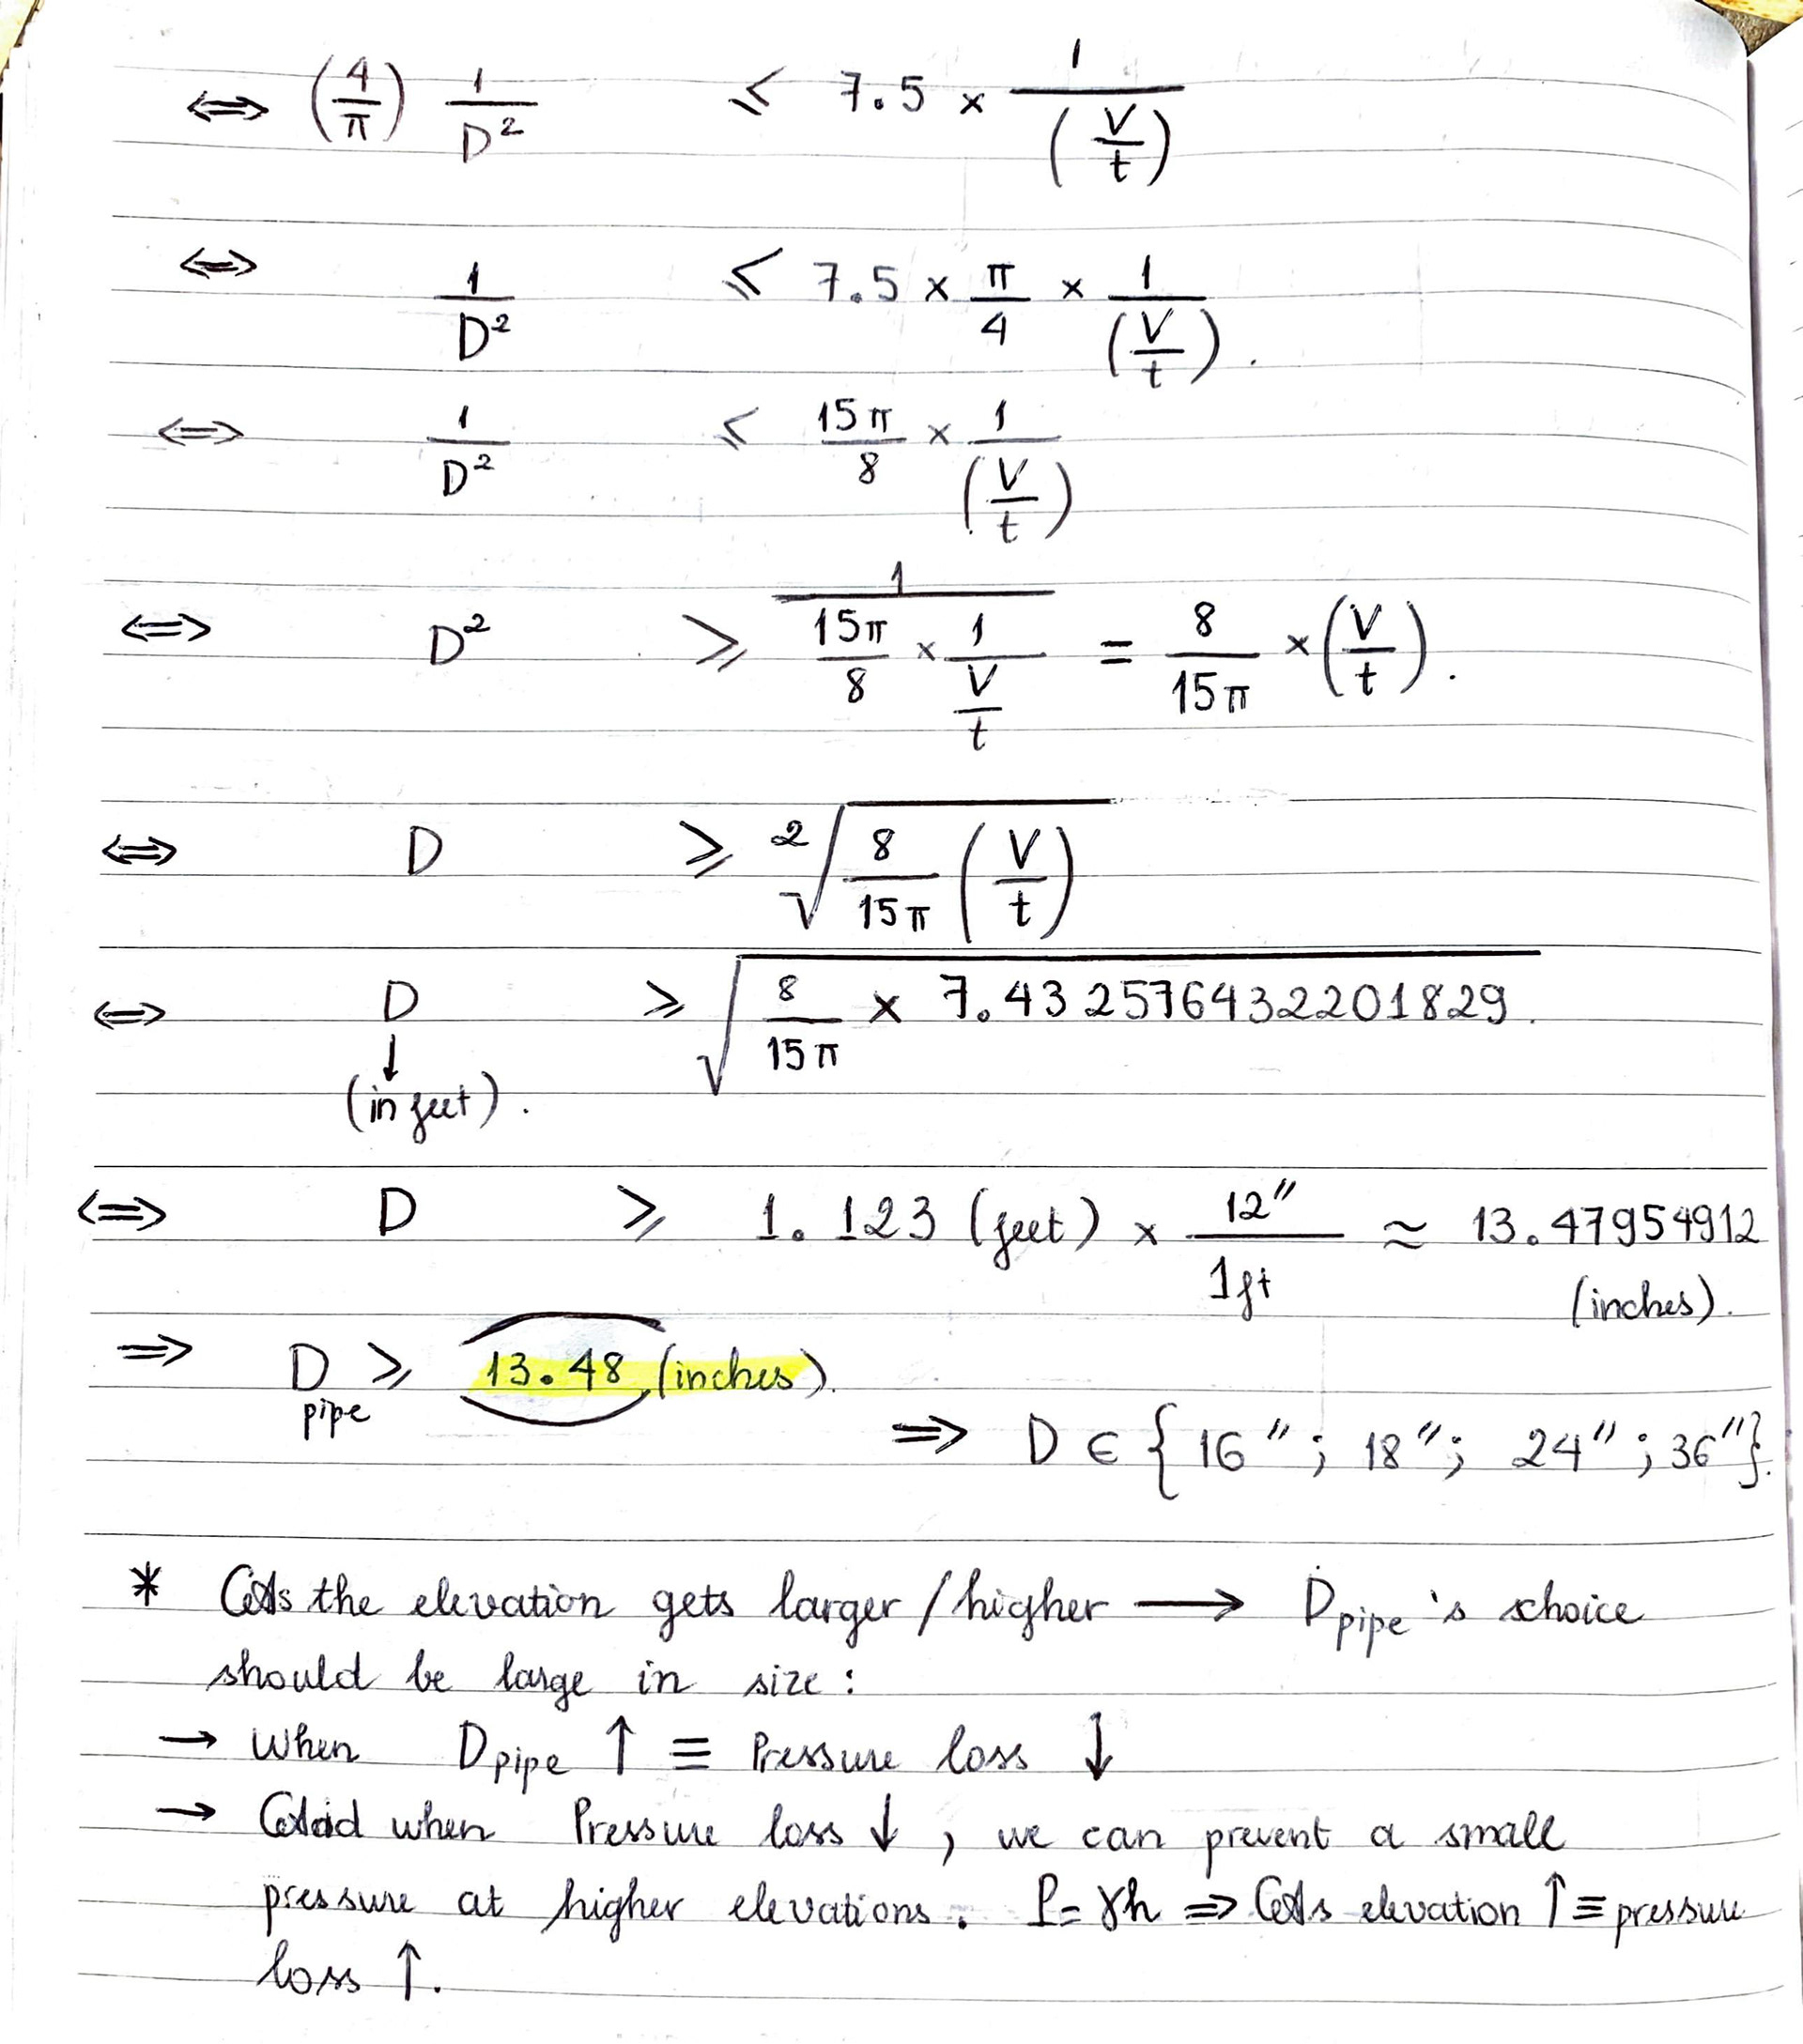 ⟺ (4/π) 1/D² ≤ 7.5 × 1/(V/t)
⟺ 1/D² ≤ 7.5 × π/4 × 1/(V/t).
⟺ 1/D² ≤ 15π/8 × 1/(V/t)
⟺ D² ≥ 1/(15π/8 × 1/(V/t)) = 8/15π × (V/t).
⟺ D ≥ ²√(8/15π (V/t))
⟺ D ≥ √(8/15π × 7.432576432201829).
↓
(in feet).
⟺ D ≥ 1.123 (feet) × 12"/1ft ≈ 13.47954912
(inches).
⟹ D pipe ≥ 13.48 (inches).
⟹ D ∈ {16"; 18"; 24"; 36"}.
* As the elevation gets larger/higher ⟶ D pipe's choice
should be large in size:
→ When D pipe ↑ ≡ Pressure loss ↓
→ when Pressure loss ↓, we can prevent a small
pressure at higher elevations. P = γh ⟹ As elevation ↑ ≡ pressure
loss ↑.